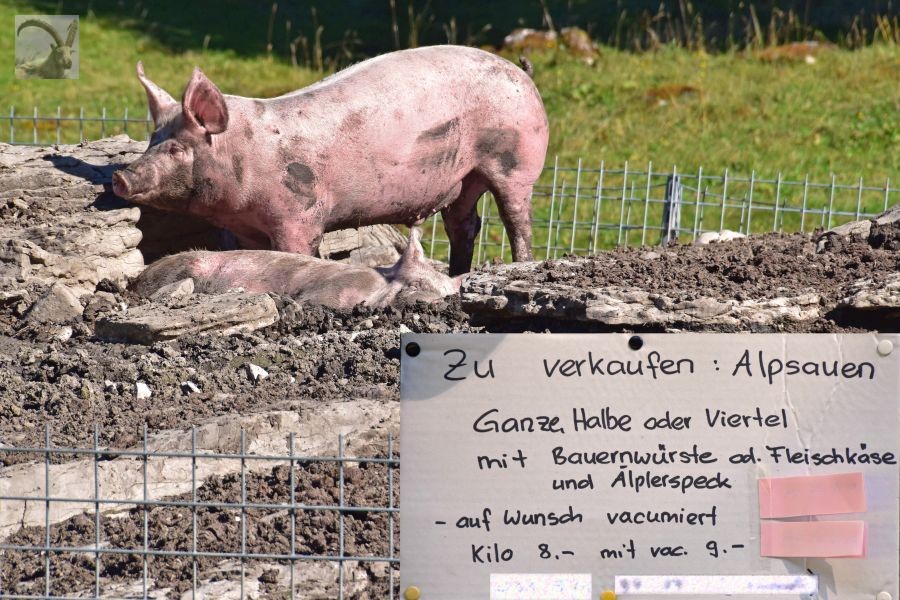 Zu verkaufen : Alpsauen
Ganze, Halbe oder Viertel
mit Bauernwürste od. Fleischkäse
und Älplerspeck
- auf Wunsch vacumiert
Kilo 8.- mit vac. 9.-